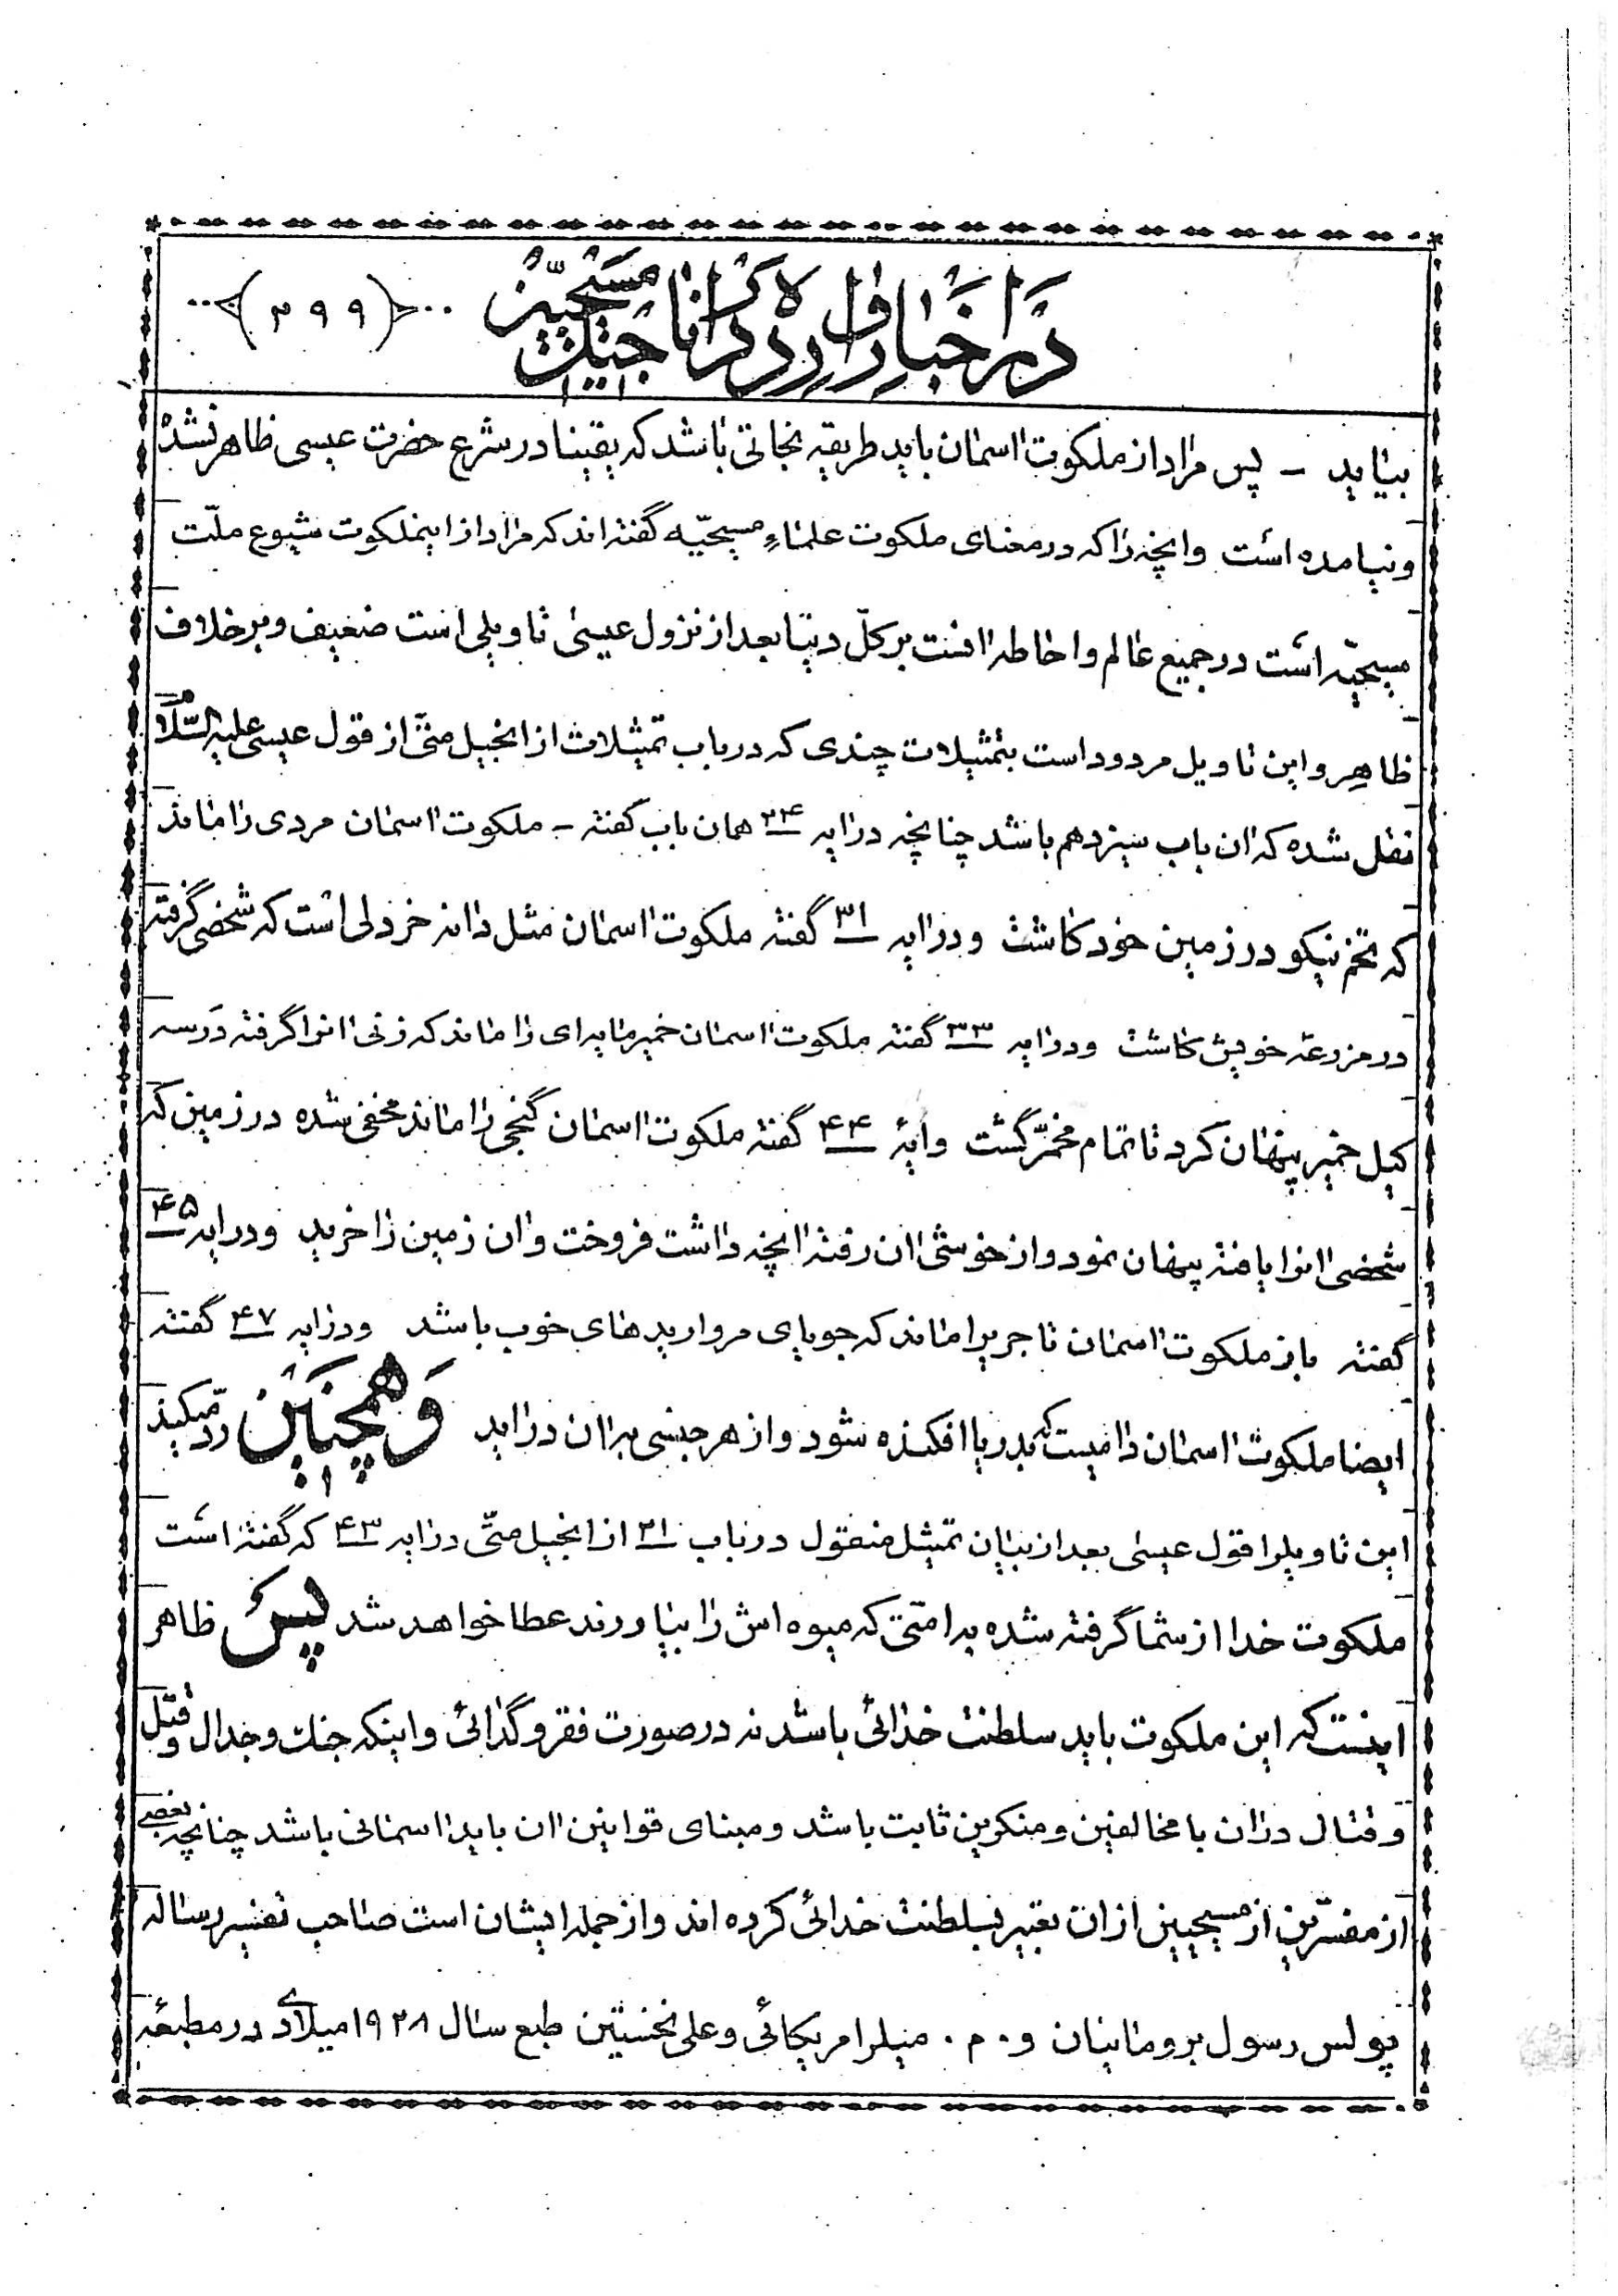 در اخبار وارده در اناجیل مسیحیین (۲۹۹)
بیاید - پس مراد از ملکوت اسمان باید طریقه نجاتی باشد که یقینا در شرع حضرت عیسی ظاهر نشده
و نیامده است وانچه را که در معنای ملکوت علماء مسیحیّه گفته اند که مراد از اینملکوت شیوع ملّت
مسیحیّه است در جمیع عالم و احاطه انست بر کلّ دنیا بعد از نزول عیسی تاویلی است ضعیف و بر خلاف
ظاهر و این تاویل مردود است بتمثیلات چندی که در باب تمثیلات از انجیل متّی از قول عیسی علیه السّلام
نقل شده که ان باب سیزدهم باشد چنانچه درایه ۲۴ همان باب گفته - ملکوت اسمان مردی را ماند
که تخم نیکو در زمین خود کاشت و درایه ۳۱ گفته ملکوت اسمان مثل دانه خردلی است که شخصی گرفته
در مزرعه خویش کاشت و درایه ۳۳ گفته ملکوت اسمان خمیر مایه ای را ماند که زنی انرا گرفته در سه
کیل خمیر پنهان کرد تا تمام مخمّر گشت وایهٔ ۴۴ گفته ملکوت اسمان گنجی را ماند مخفی شده در زمین که
شخصی انرا یافته پنهان نمود و از خوشی ان رفته انچه داشت فروخت و ان زمین را خرید و درایه ۴۵
گفته باز ملکوت اسمان تاجریرا ماند که جویای مروارید های خوب باشد و درایه ۴۷ گفته
ایضا ملکوت اسمان دامیست که بدریا افکنده شود و از هر جنسی بران دراید وهمچنین ردّ میکند
این تاویلرا قول عیسی بعد از بیان تمثیل منقول در باب ۲۱ از انجیل متّی درایه ۴۳ که گفته است
ملکوت خدا از شما گرفته شده به امّتی که میوه اش را بیاورند عطا خواهد شد پس ظاهر
اینست که این ملکوت باید سلطنت خدائی باشد نه در صورت فقر و گدائی و اینکه جنك و جدال و قتل
و قتال دران با مخالفین و منکرین ثابت باشد و مبنای قوانین ان باید اسمانی باشد چنانچه بعضی
از مفسّرین از مسیحیین از ان تعبیر بسلطنت خدائی کرده اند و از جمله ایشان است صاحب تفسیر رساله
پولس رسول برومانیان و . م . میلر امریکائی و علی نخستین طبع سال ۱۹۲۸ میلادی در مطبعهٔ